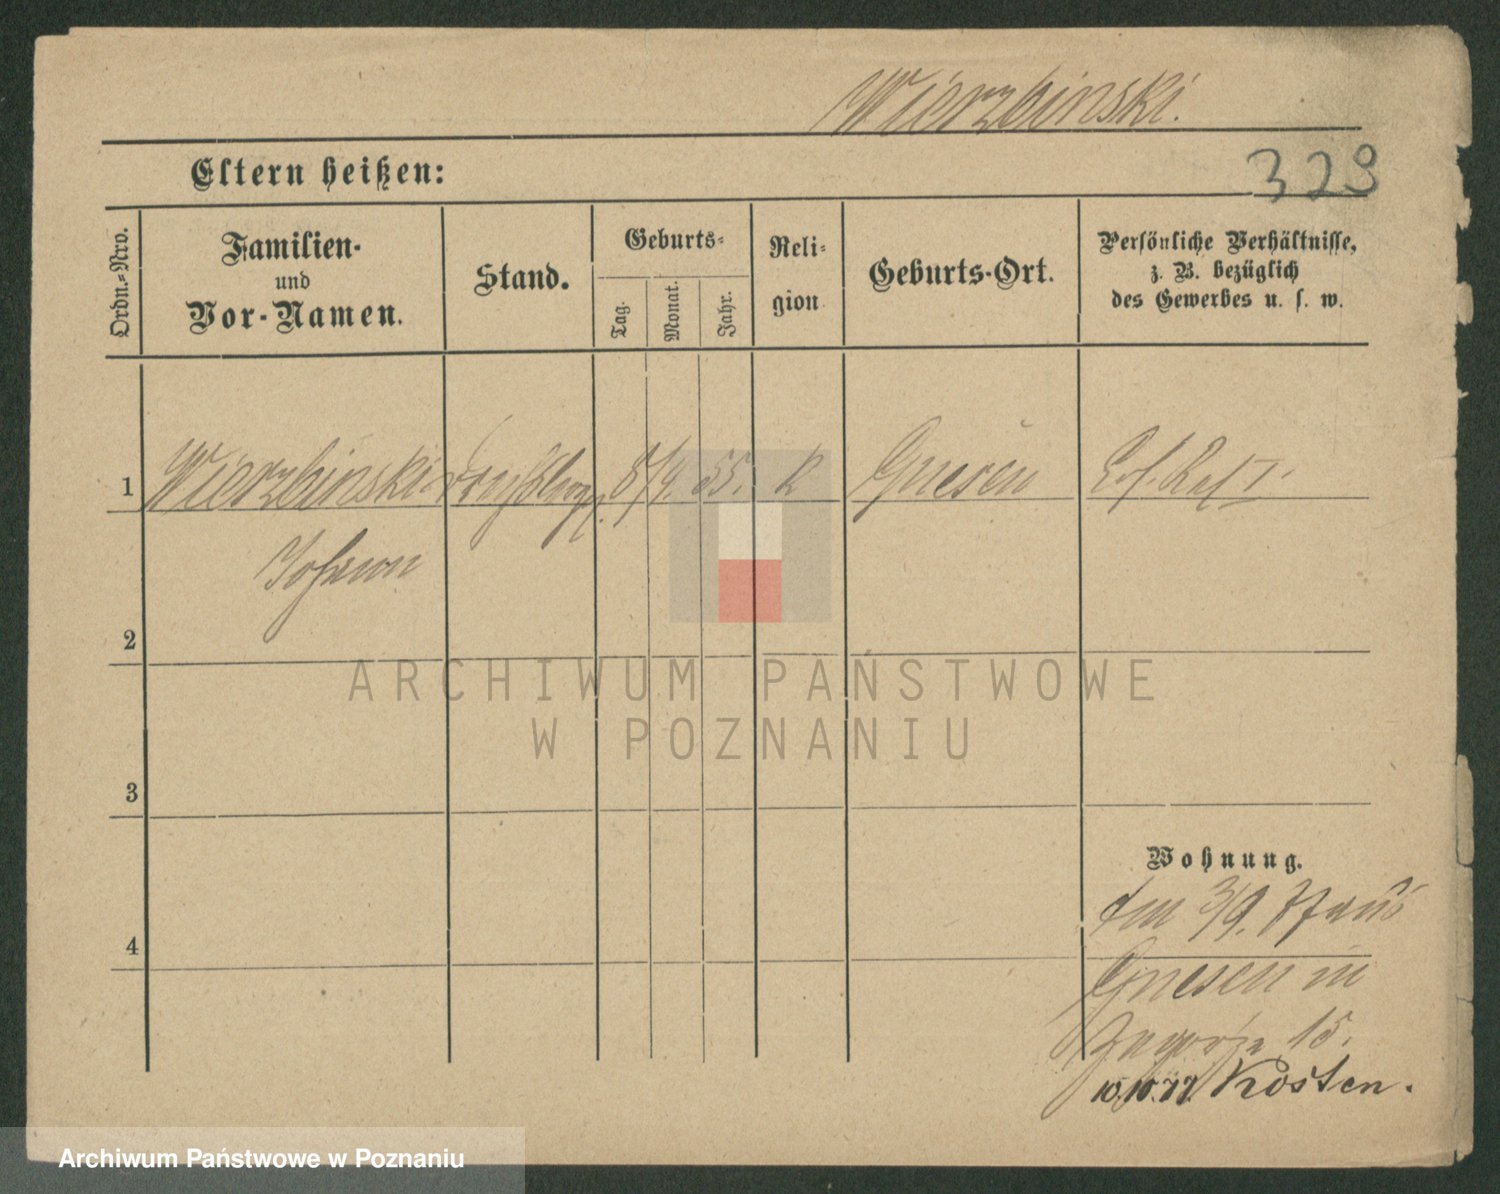 Wierzbinski.
Eltern heißen:
323
Ordn.-Nro.
Familien-
und
Vor-Namen.
Stand.
Geburts-
Tag.
Monat.
Jahr.
Reli-
gion
Geburts-Ort.
Persönliche Verhältnisse,
z. B. bezüglich
des Gewerbes u. s. w.
1 Wierzbinski 8/4. 55. K Gnesen
Johann
2
3
4
Wohnung.
3/9. 77 aus
Gnesen in
15.
10.10.77. Kosten.
ARCHIWUM PAŃSTWOWE
W POZNANIU
Archiwum Państwowe w Poznaniu